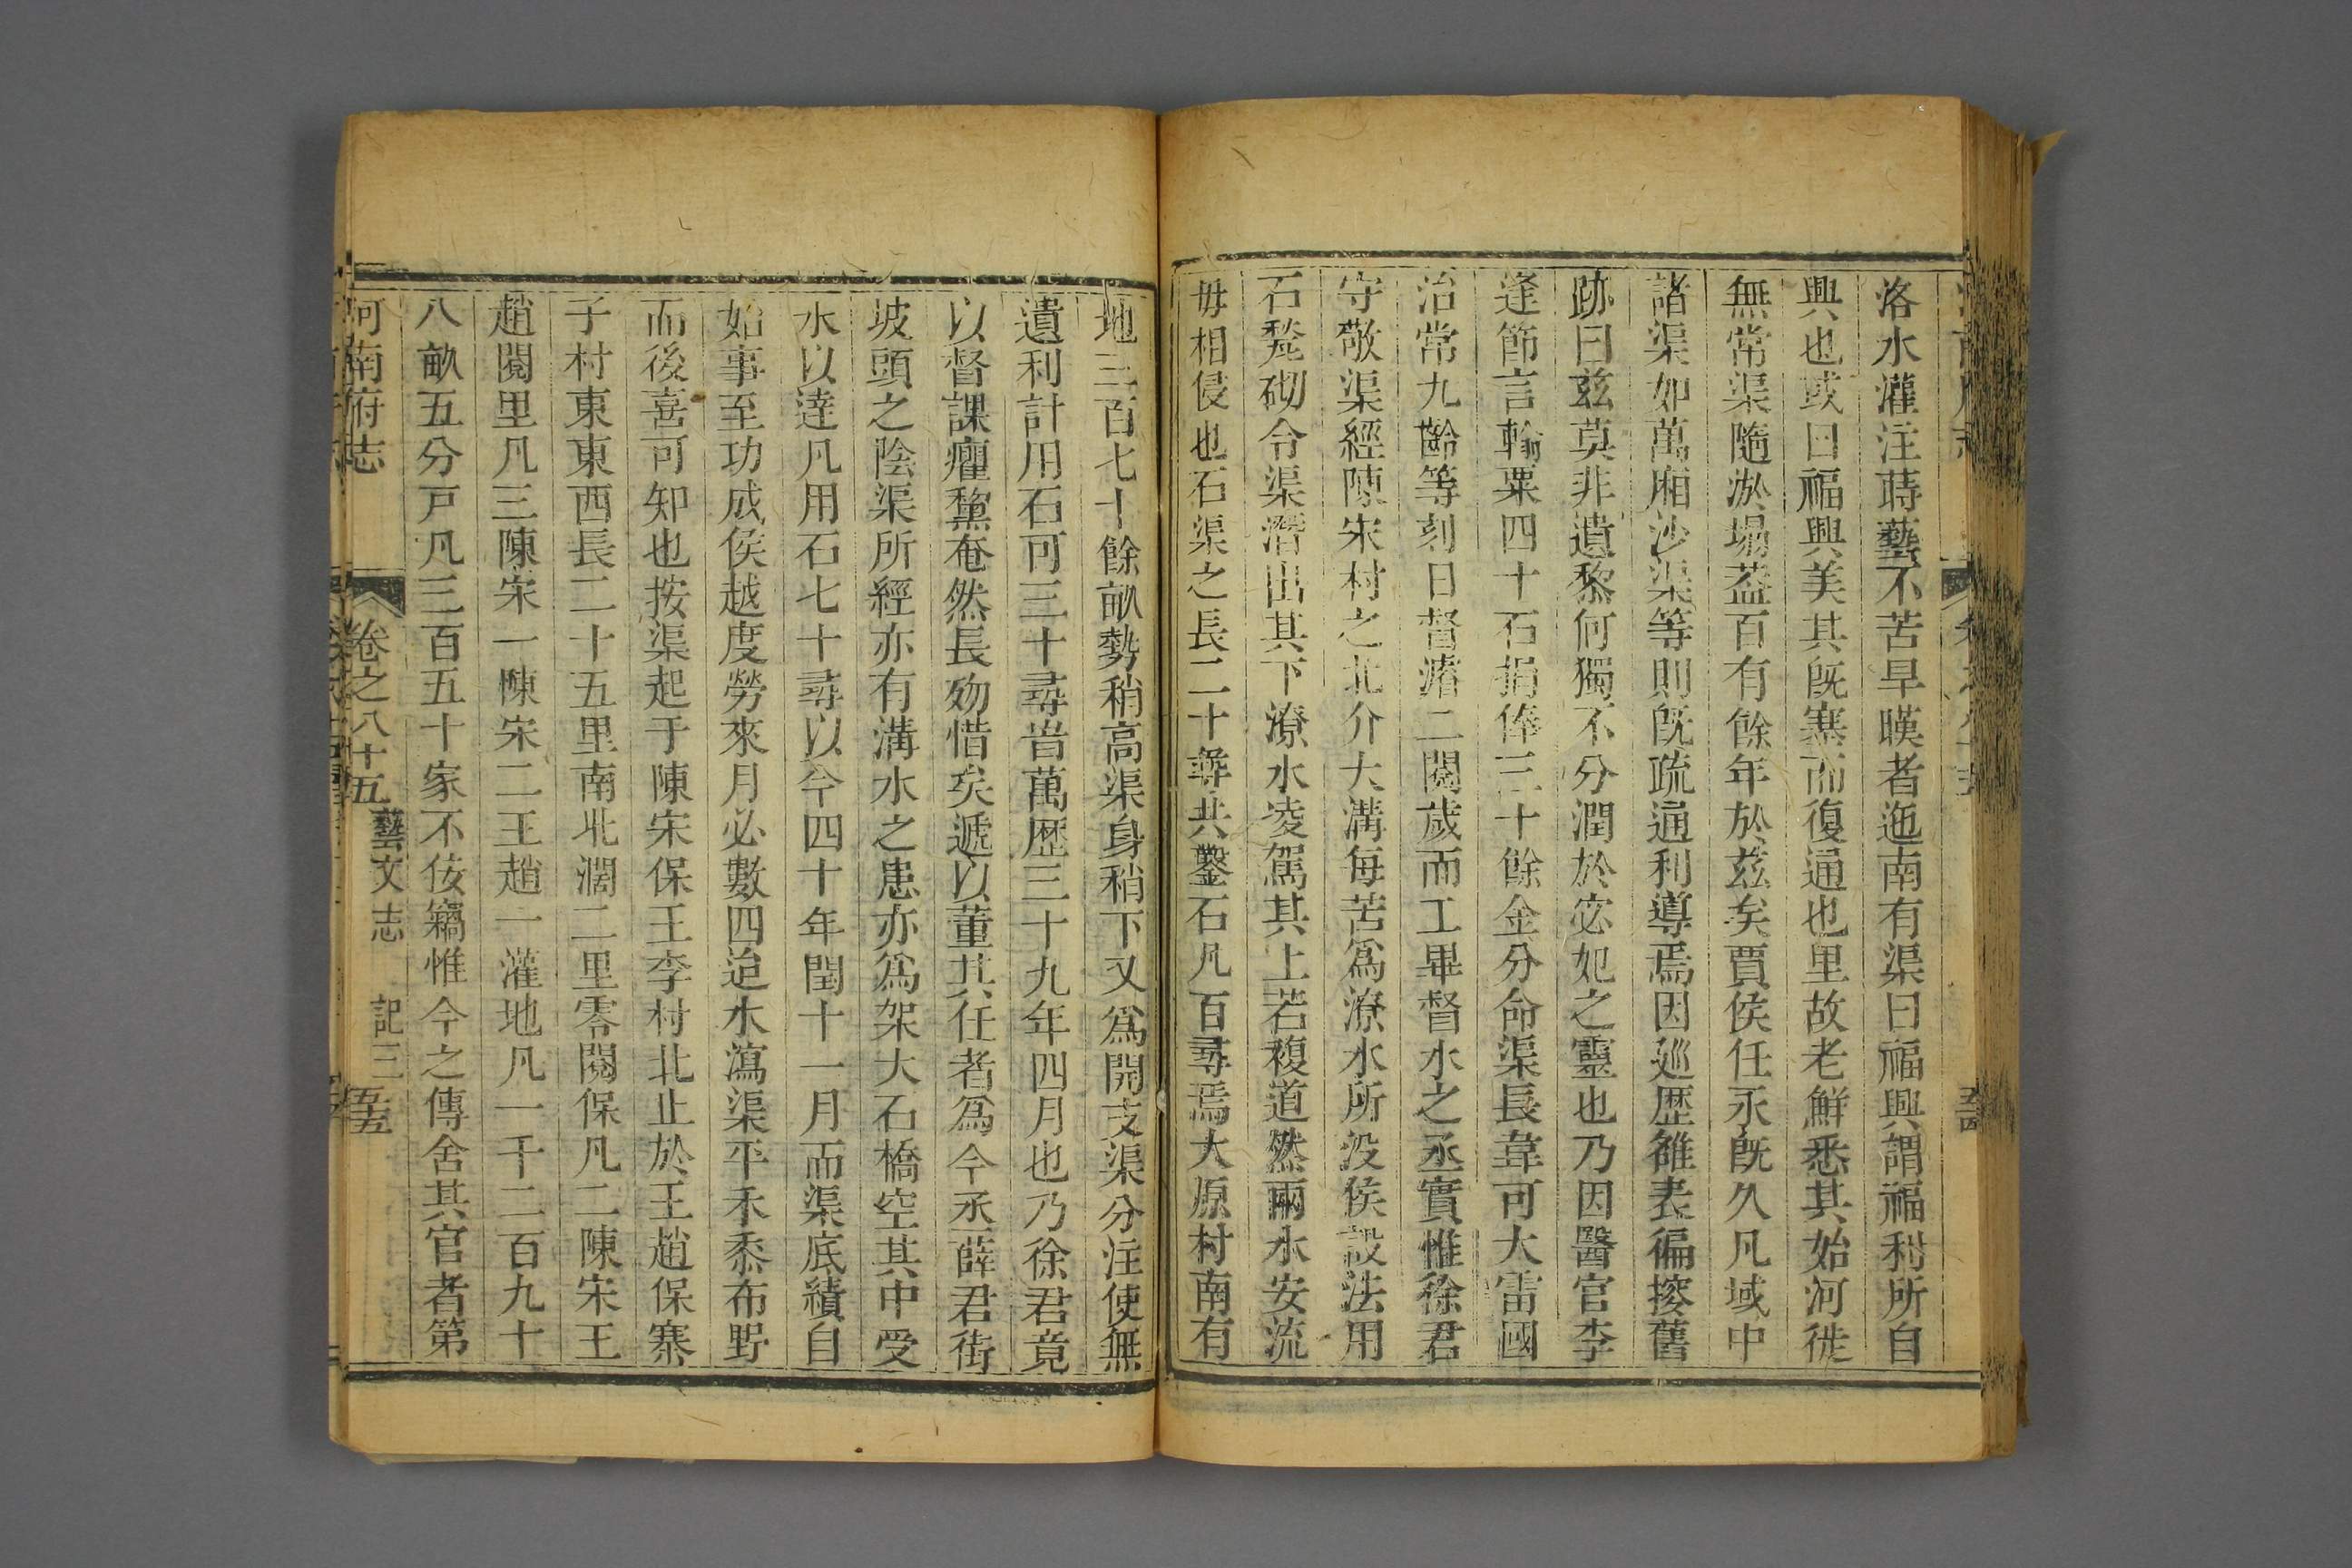 洛水灌注蒔藝不苦旱暵者迤南有渠曰福興謂福利所自
興也或曰福興美其旣塞而復通也里故老鮮悉其始河徙
無常渠隨淤塌葢百有餘年於兹矣賈侯任永旣久凡域中
諸渠如萬廂沙渠等則旣疏通利導焉因廵歷雒表徧摉舊
跡曰兹莫非遺黎何獨不分潤於宓妃之靈也乃因醫官李
逢節言輸粟四十石捐俸三十餘金分命渠長韋可大雷國
治常九齡等刻日督濬二閱歲而工畢督水之丞實惟徐君
守敬渠經陳宋村之北介大溝每苦爲潦水所没侯設法用
石甃砌令渠潛出其下潦水凌駕其上若複道然兩水安流
毋相侵也石渠之長二十尋共鑿石凡百尋焉大原村南有
地三百七十餘畝勢稍高渠身稍下又爲開支渠分注使無
遺利計用石可三十尋旹萬歷三十九年四月也乃徐君竟
以督課癯黧奄然長殁惜矣遞以董其任者爲今丞薛君街
坡頭之陰渠所經亦有溝水之患亦爲架大石橋空其中受
水以達凡用石七十尋以今四十年閏十一月而渠底績自
始事至功成侯越度勞來月必數四迨水瀉渠平禾黍布野
而後喜可知也按渠起于陳宋保王李村北止於王趙保寨
子村東東西長二十五里南北濶二里零閱保凡二陳宋王
趙閱里凡三陳宋一陳宋二王趙一灌地凡一千二百九十
八畝五分戸凡三百五十家不佞竊惟今之傳舍其官者第
河南府志
卷之八十五
藝文志
記三
五五